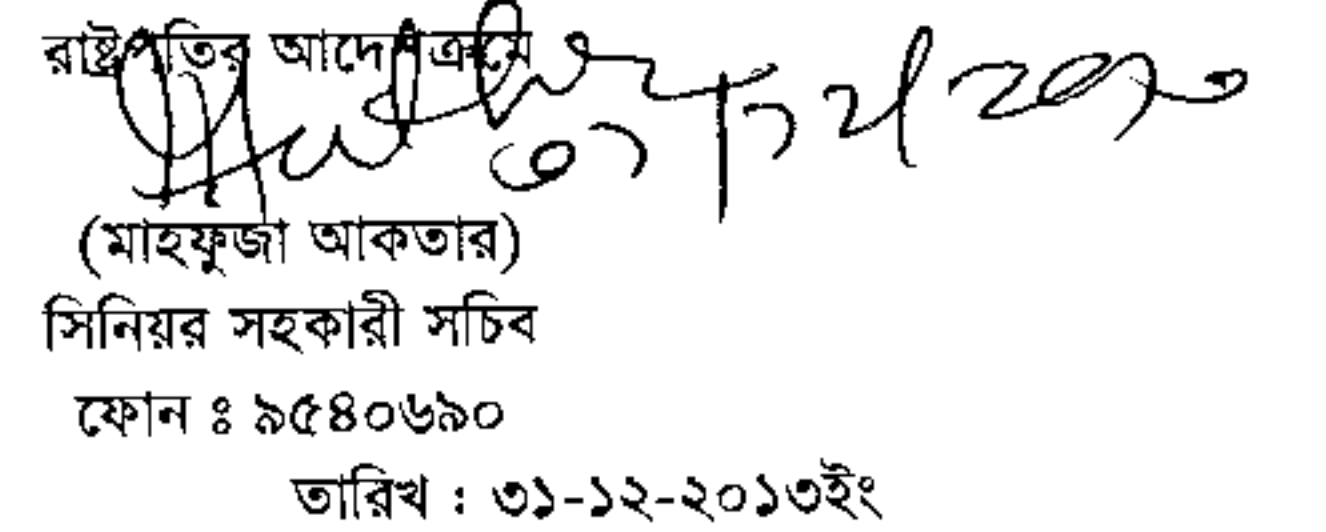 রাষ্ট্রপতির আদেশক্রমে
(মাহফুজা আকতার)
সিনিয়র সহকারী সচিব
ফোন ঃ ৯৫৪০৬৯০
তারিখ : ৩১-১২-২০১৩ইং